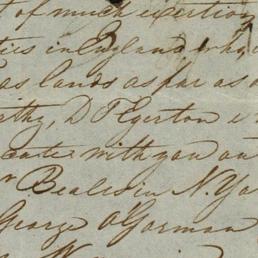 of much exertion
ties in England who
as lands as far as
D Egerton
with you on
Beales in N. Yo
George O'Gorman